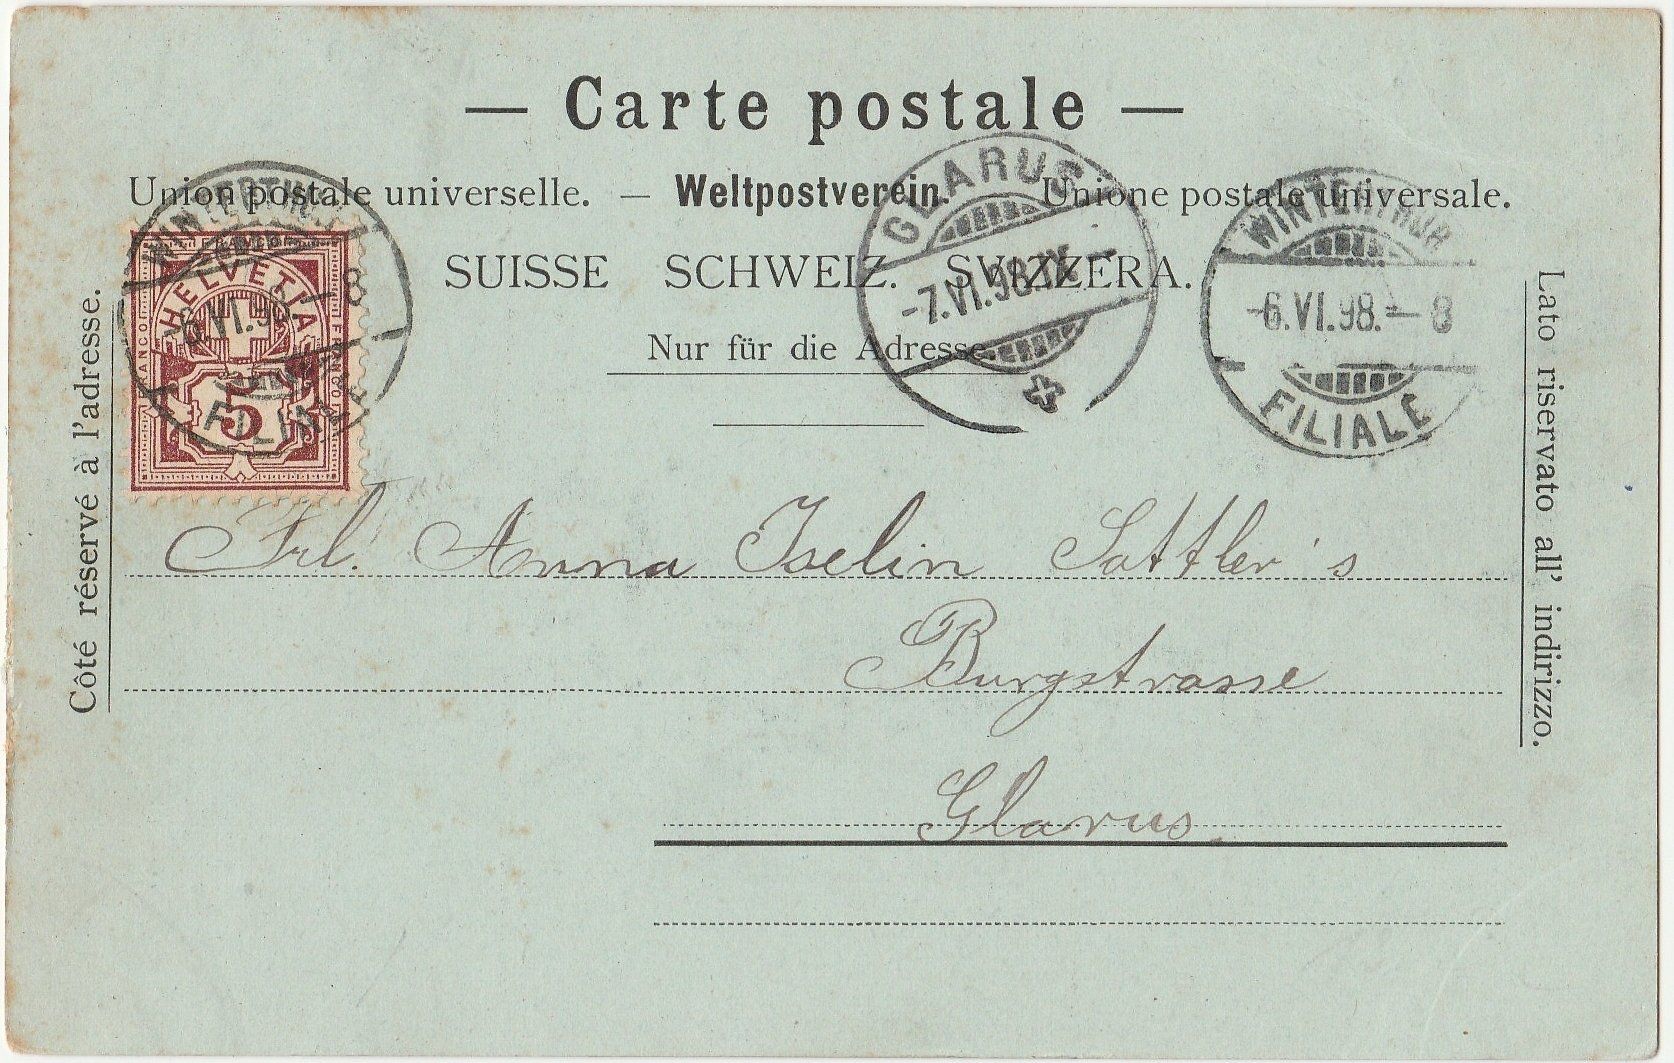 — Carte postale —
Union postale universelle. — Weltpostverein. — Unione postale universale.
SUISSE SCHWEIZ. SVIZZERA.
Nur für die Adresse.
Côté réservé à l'adresse.
Lato riservato all' indirizzo.
WINTERTHUR
-6.VI.98.-8
FILIALE
FRANCO
HELVETIA
FRANCO
FRANCO
5
GLARUS
-7.VI.98.IX-
WINTERTHUR
-6.VI.98.-8
FILIALE
Frl. Anna Iselin Sattler's
Burgstrasse
Glarus.